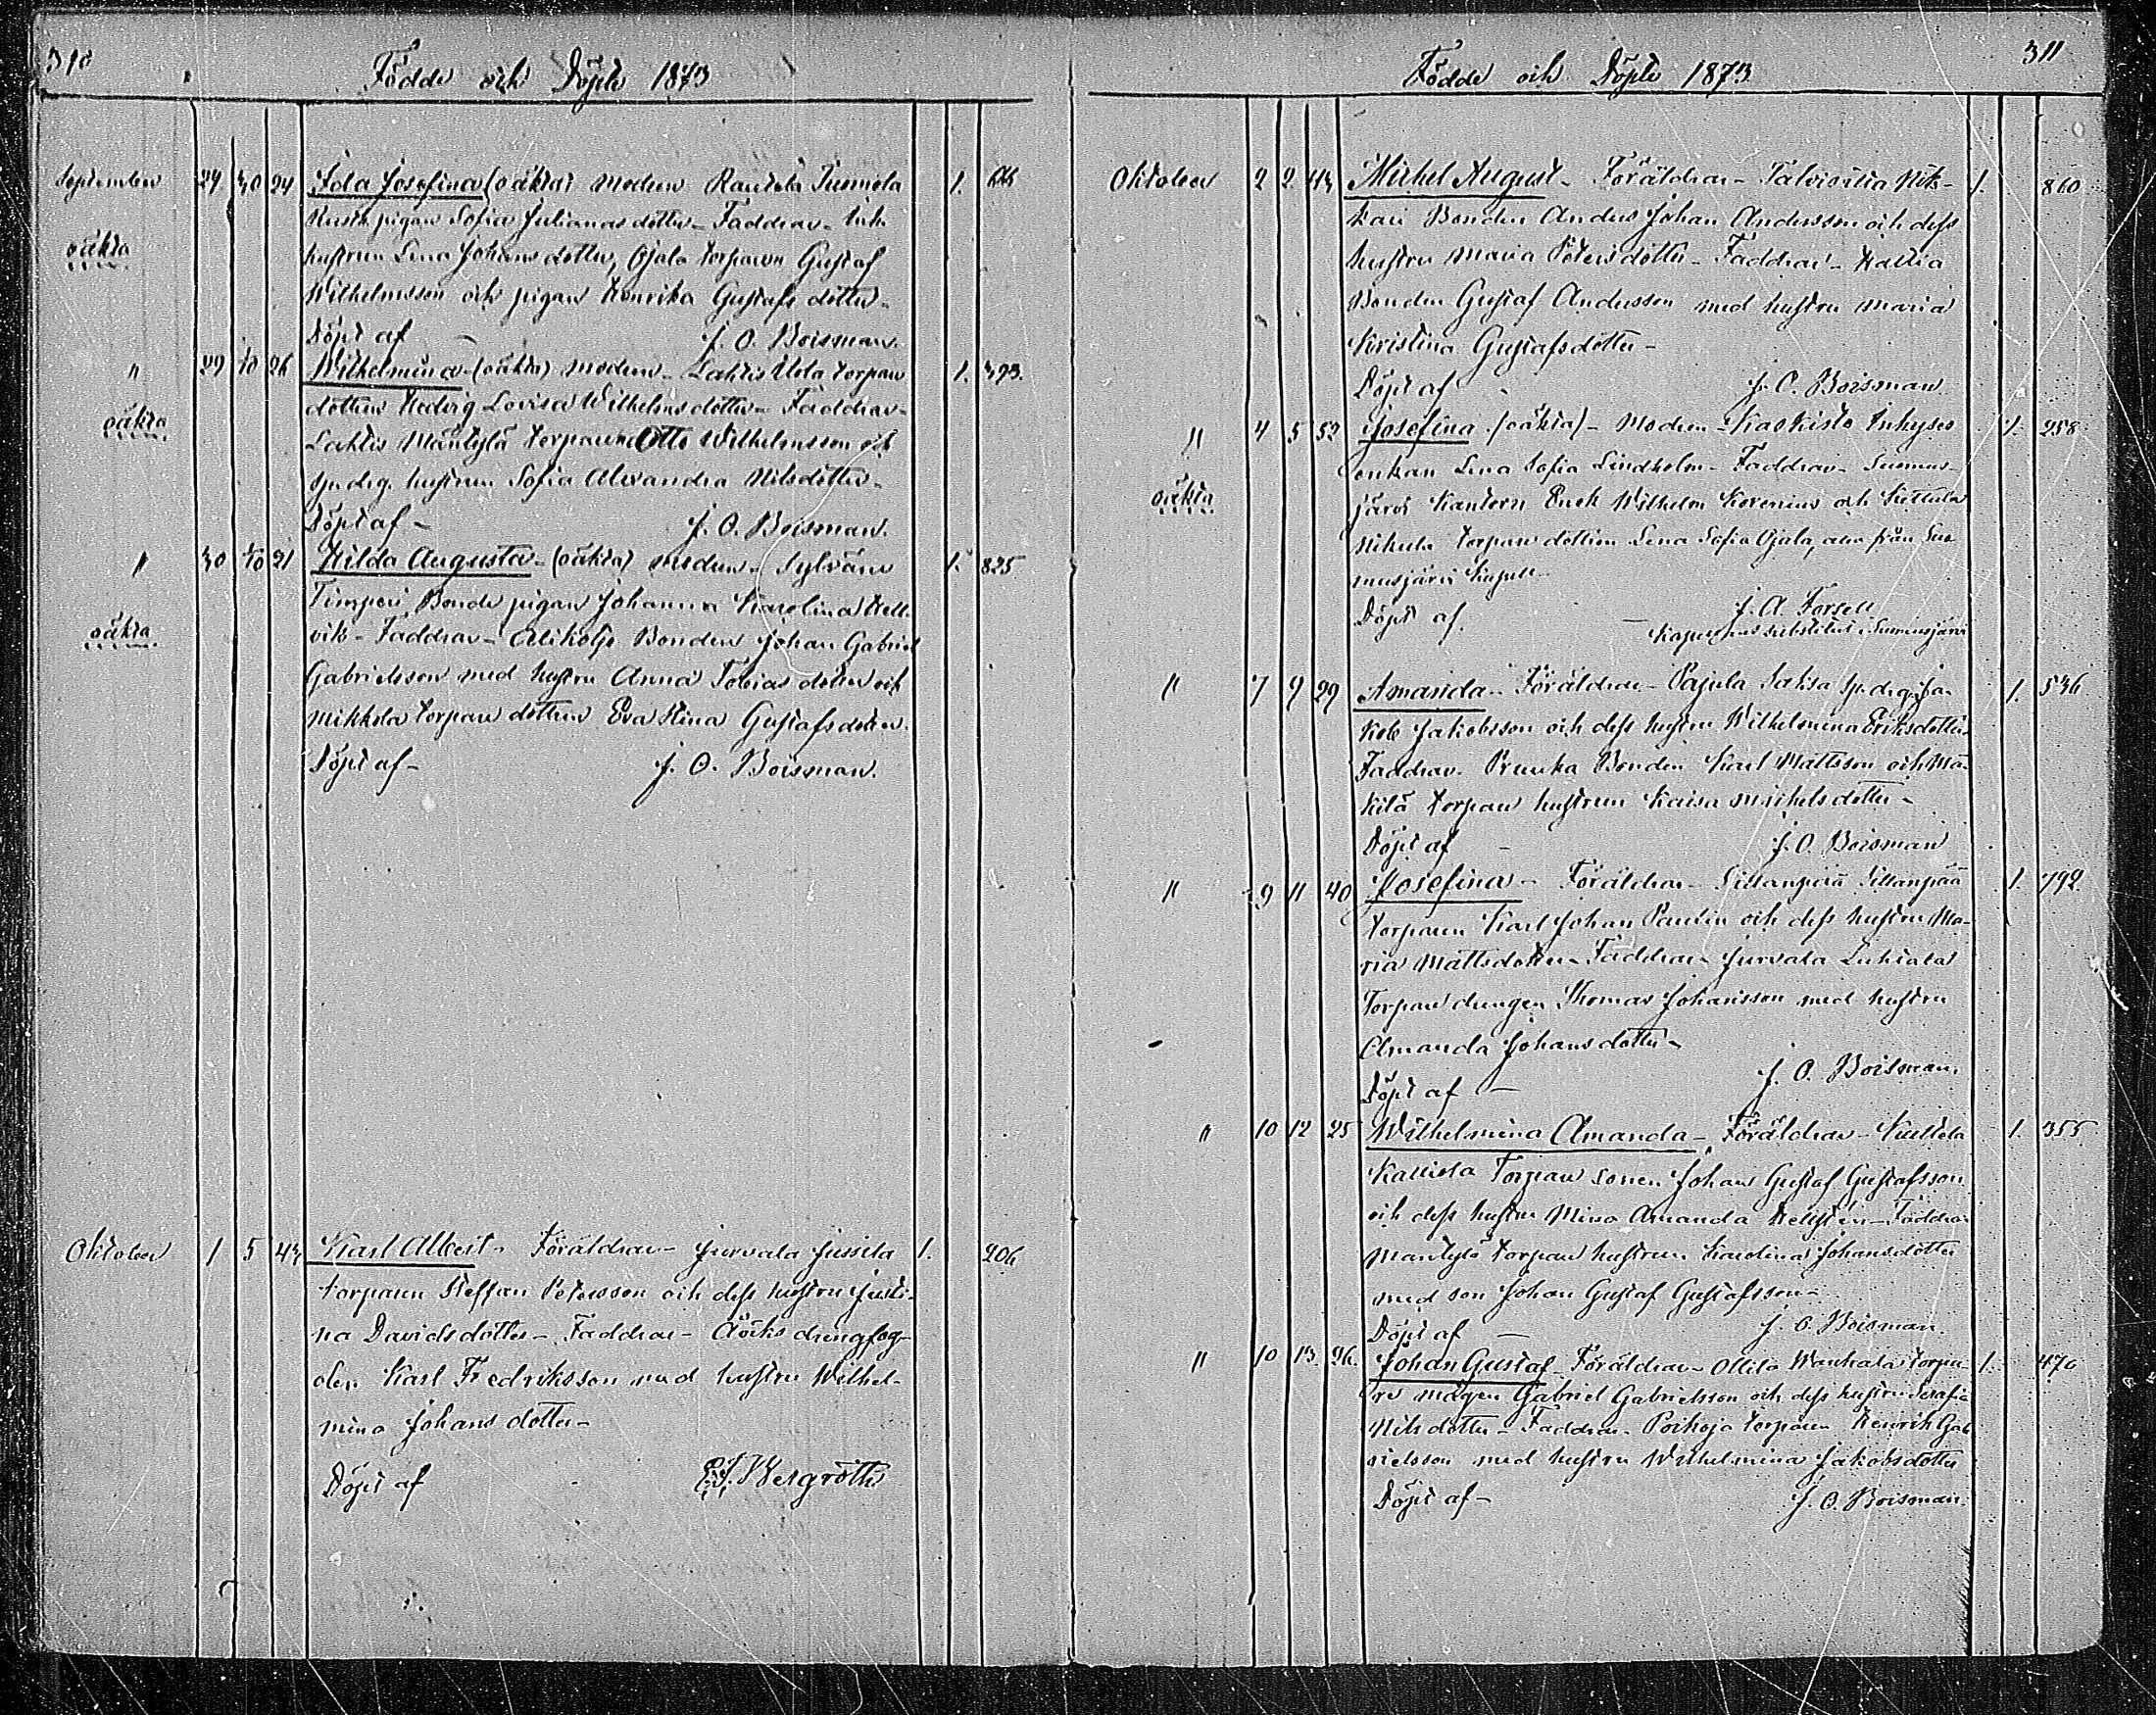 310
Födde och Döpte 1873
September 29 30 24 Ida Josefina (oäkta) modren Rautela Tuomola 1.
oäkta
Rusth. pigan Sofia Julianas dotter - Faddrar - Inh.
hustrun Lena Johans dotter, Ojala torparn Gustaf
Wilhelmsson och pigan Henrika Gustafs dotter -
Döpt af - J. O. Boisman.
" 29 1/10 26 Wilhelmina - (oäkta) modren - Lahtis Uola torpare 1. 393.
oäkta
dottren Hedvig Lovisa Wilhelmsdotter - Faddrar -
Lahtis Mäntylä torparen Otto Wilhelmsson och
spndrg. hustrun Sofia Alexandra Nilsdotter -
Döpt af - J. O. Boisman.
" 30 5/10 21 Hilda Augusta - (oäkta) modren - Sylvänä 1. 825
oäkta
Timperi Bonde pigan Johanna Karolina Hell-
vik - Faddrar - Alikolja Bonden Johan Gabriel
Gabrielsson med hustru Anna Tobias dotter och
Mikkola torpare dottren Eva Stina Gustafsdotter.
Döpt af - J. O. Boisman.
Oktober 1 5 43 Karl Albert - Föräldrar - Jurvala Jussila 1. 206
torparen Steffan Petersson och dess hustru Justi-
na Davidsdotter - Faddrar - Åviks drengfog-
den Karl Fredriksson med hustru Wilhel-
mina Johans dotter -
Döpt af - E. J. Bergroth.
311
Födde och Döpte 1873
Oktober 2 2 44 Michel August - Föräldrar - Talvisilta Nik- 1. 860
kari Bonden Anders Johan Andersson och dess
hustru Maria Petersdotter - Faddrar - Hattia
Bonden Gustaf Andersson med hustru Maria
Kristina Gustafsdotter -
Döpt af - J. O. Boisman
" 4 5 32 Josefina (oäkta) - Modren - Kaskisto Inhyses 1. 258
oäkta
enkan Lena Sofia Lindholm - Faddrar - Suomus-
järvi Kantorn Enok Wilhelm Korenius och Kettula
Nikula torpare dottren Lena Sofia Ojala, alla från Suo-
musjärvi Kapell -
Döpt af - J. A. Forsell
Kapellans substitut i Suomusjärvi
" 7 9 29 Amanda - Föräldrar - Pajula Saksa spndrg. Ja- 1. 546
kob Jakobsson och dess hustru Wilhelmina Eriksdotter
Faddrar - Pruuka Bonden Karl Mattsson och Mä-
kilä torpare hustrun Kaisa Michels dotter -
Döpt af - J. O. Boisman
" 9 11 40 Josefina - Föräldrar - Sillanpää Sillanpää 1. 792
torparen Karl Johan Paulin och dess hustru Ma-
ria Mattsdotter - Faddrar - Jurvala
Torpare drengen Thomas Johansson med hustru
Amanda Johansdotter -
Döpt af - J. O. Boisman.
" 10 12 25 Wilhelmina Amanda - Föräldrar - Kuttela 1. 355
Kallista Torpare sonen Johan Gustaf Gustafsson
och dess hustru Mina Amanda Hellstén - Faddrar
Mäntylä torpare hustrun Karolina Johansdotter
med son Johan Gustaf Gustafsson -
Döpt af - J. O. Boisman.
" 10 13. 26. Johan Gustaf - Föräldrar - Ollila Wanhala torpa- 1. 470
re mågen Gabriel Gabrielsson och dess hustru Serafia
Nilsdotter - Faddrar - Poikoja torparen Henrik Gab-
rielsson med hustru Wilhelmina Jakobsdotter
Döpt af - J. O. Boisman.